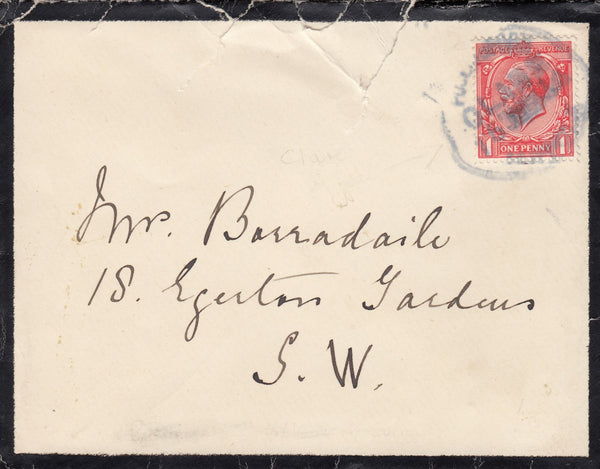 POSTAGE REVENUE
1 ONE PENNY 1
Clark
Mrs. Borradaile
18. Egerton Gardens
S. W.